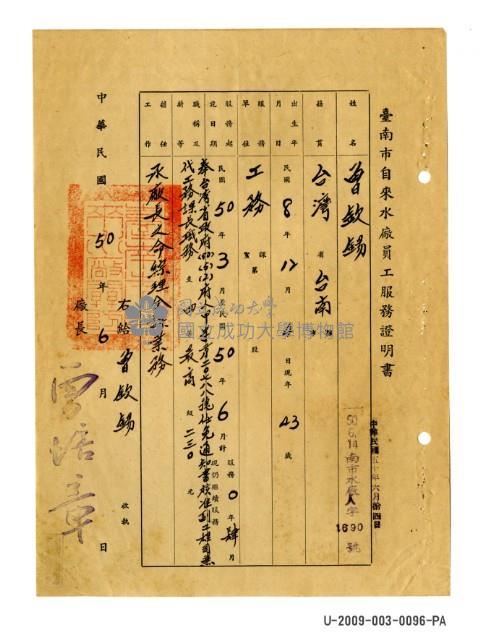 臺南市自來水廠員工服務證明書
中華民國五十年六月拾四日
50.6.14南市水廠人字1690號
姓名 曾欽錫
籍貫 台灣省台南
出生年月日 民國8年12月 日現年43歲
服務單位 工務課 第 股
服務起訖日期 民國50年3月 民國50年6月 計服務0年肆月
現仍繼續服務
奉台灣省政府
任免通知書核准
職稱及薪等 代工務課長職務
級二三〇元
擔任工作 承廠長之命綜理全課業務
右給曾欽錫收執
廠長
中華民國50年6月 日
國立成功大學博物館
U-2009-003-0096-PA